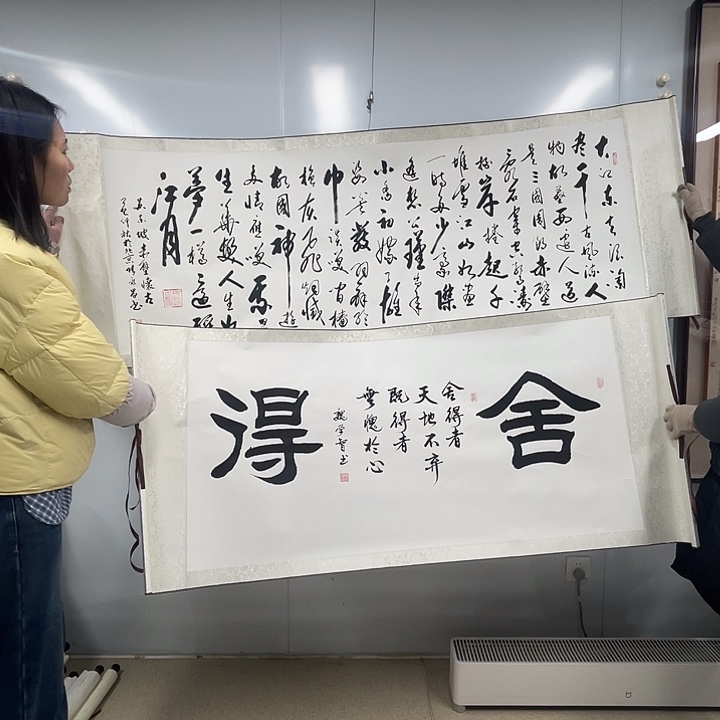 大江东去浪淘
尽千古风流人
物故垒西边人道
是三国周郎赤壁
乱石穿空惊涛
拍岸捲起千
堆雪江山如画
一时多少豪傑
遥想公瑾当年
小乔初嫁了雄
姿英发羽扇纶
巾谈笑间樯
橹灰飞烟灭
故国神遊
多情应笑我早
生华发人生如
梦一樽还酹
江月
苏东坡赤壁怀古
於北京
书
舍
舍得者
天地不弃
既得者
無愧於心
魏学智书
得